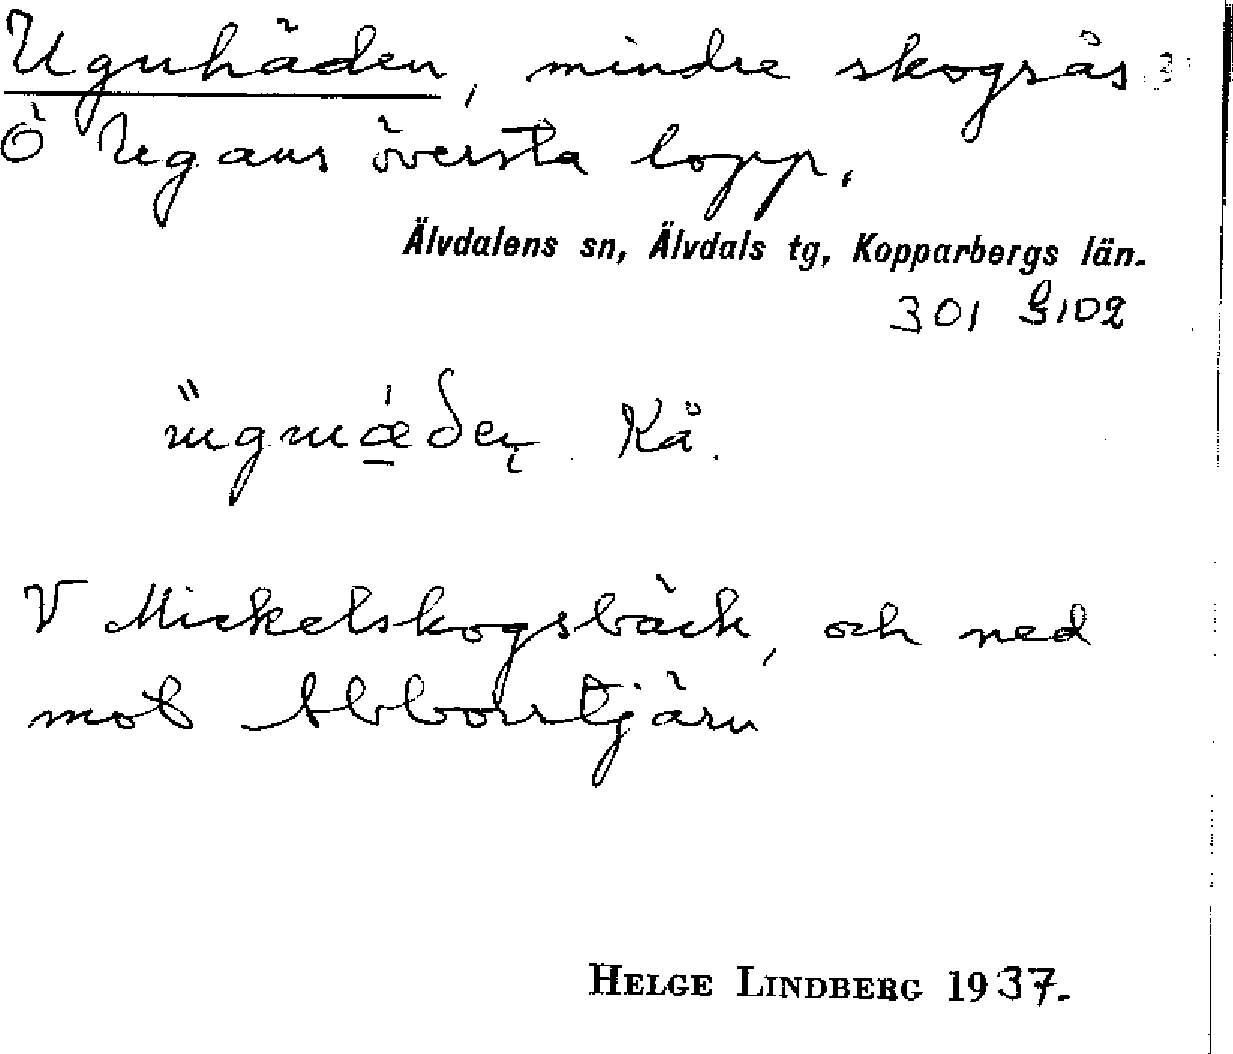 Ugnhäden, mindre skogsås
Ö Ugans översta lopp.
Älvdalens sn, Älvdals tg, Kopparbergs län.
301 G102
Kå.
V Mickelskogsbäck, och ned
mot Abborrtjärn
HELGE LINDBERG 1937.